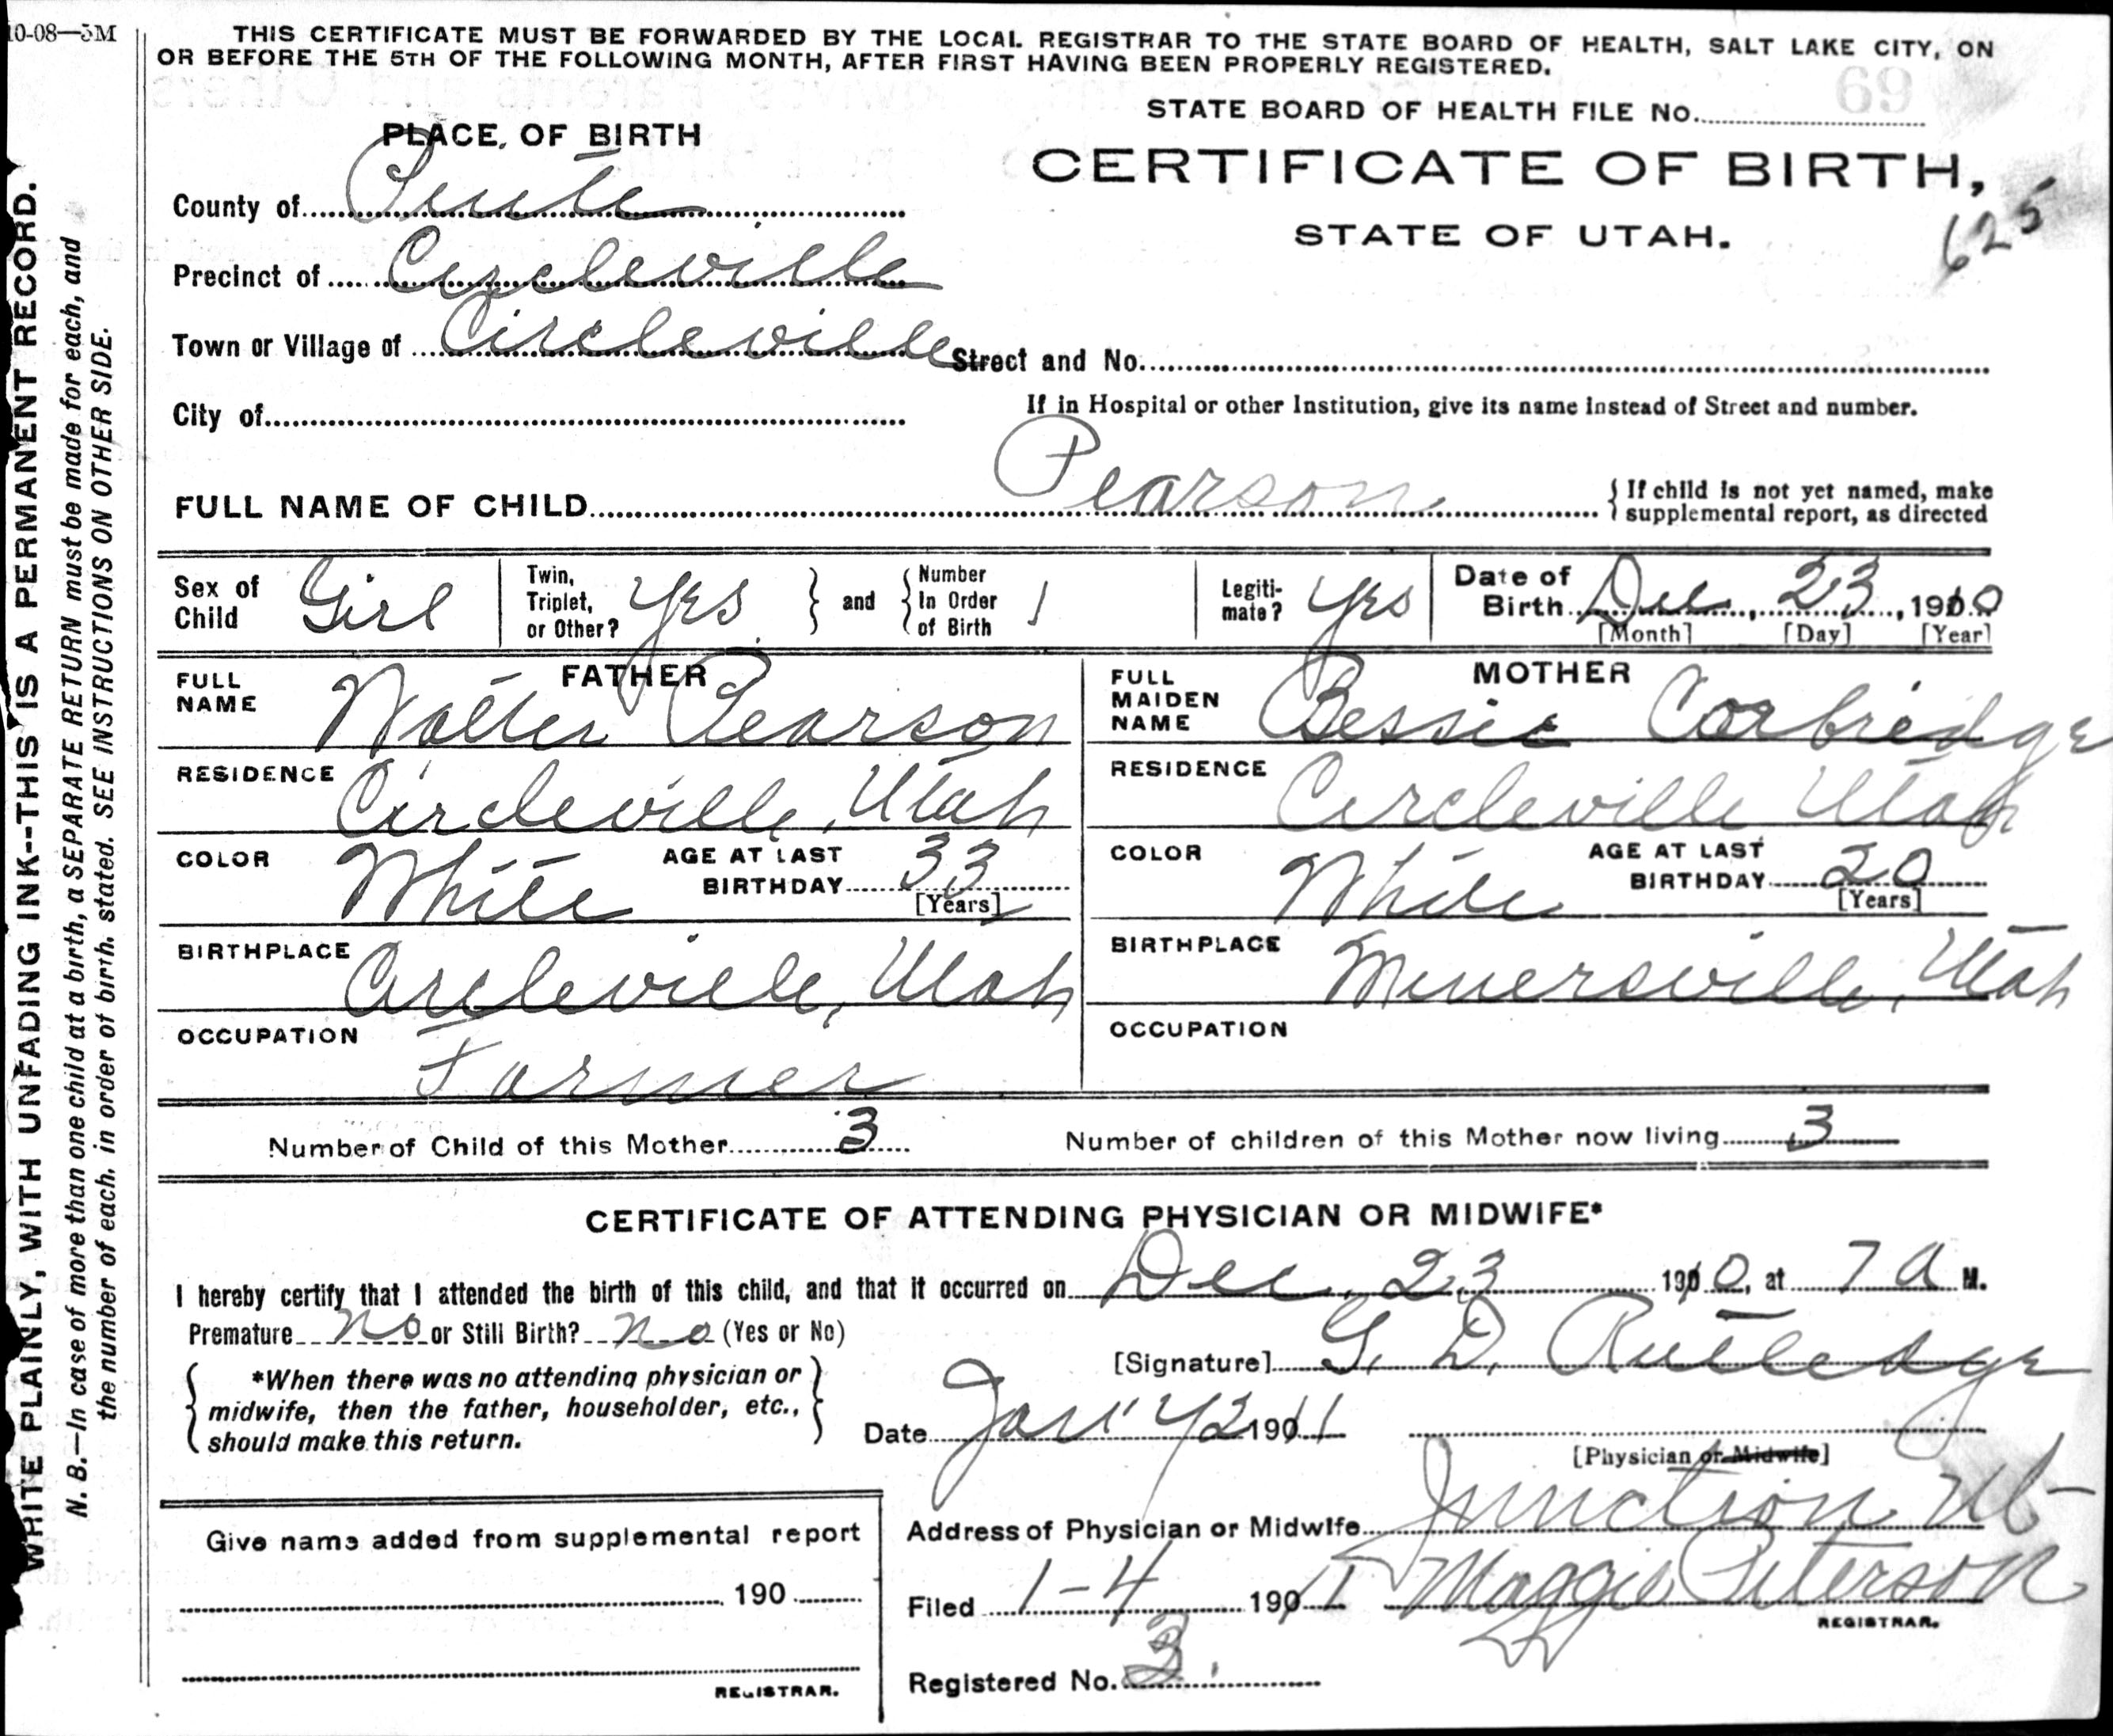 10-08—5M
THIS CERTIFICATE MUST BE FORWARDED BY THE LOCAL REGISTRAR TO THE STATE BOARD OF HEALTH, SALT LAKE CITY, ON
OR BEFORE THE 5TH OF THE FOLLOWING MONTH, AFTER FIRST HAVING BEEN PROPERLY REGISTERED.
STATE BOARD OF HEALTH FILE No. 69
PLACE OF BIRTH
CERTIFICATE OF BIRTH,
STATE OF UTAH.
625
County of Piute
Precinct of Circleville
Town or Village of Circleville Street and No.
City of
If in Hospital or other Institution, give its name instead of Street and number.
FULL NAME OF CHILD Pearson { If child is not yet named, make
supplemental report, as directed
Sex of Child Girl Twin, Triplet, or Other? Yes } and { Number In Order of Birth 1 Legiti-mate? Yes Date of Birth Dec, 23, 1910
[Month] [Day] [Year]
FATHER
FULL NAME Walter Pearson
RESIDENCE Circleville, Utah
COLOR White AGE AT LAST BIRTHDAY 33
[Years]
BIRTHPLACE Circleville, Utah
OCCUPATION Farmer
MOTHER
FULL MAIDEN NAME Bessie Corbridge
RESIDENCE Circleville Utah
COLOR White AGE AT LAST BIRTHDAY 20
[Years]
BIRTHPLACE Minersville, Utah
OCCUPATION
Number of Child of this Mother 3 Number of children of this Mother now living 3
CERTIFICATE OF ATTENDING PHYSICIAN OR MIDWIFE*
I hereby certify that I attended the birth of this child, and that it occurred on Dec. 23 1910, at 7 a M.
Premature no or Still Birth? no (Yes or No)
[Signature] G. D. Rutledge
*When there was no attending physician or
midwife, then the father, householder, etc.,
should make this return.
Date Jan 1911
[Physician or Midwife]
Address of Physician or Midwife Junction Ut
Filed 1-4 1911 Maggie Peterson
REGISTRAR.
Registered No. 3
Give name added from supplemental report
190
REGISTRAR.
WRITE PLAINLY, WITH UNFADING INK--THIS IS A PERMANENT RECORD.
N. B.—In case of more than one child at a birth, a SEPARATE RETURN must be made for each, and
the number of each, in order of birth, stated. SEE INSTRUCTIONS ON OTHER SIDE.